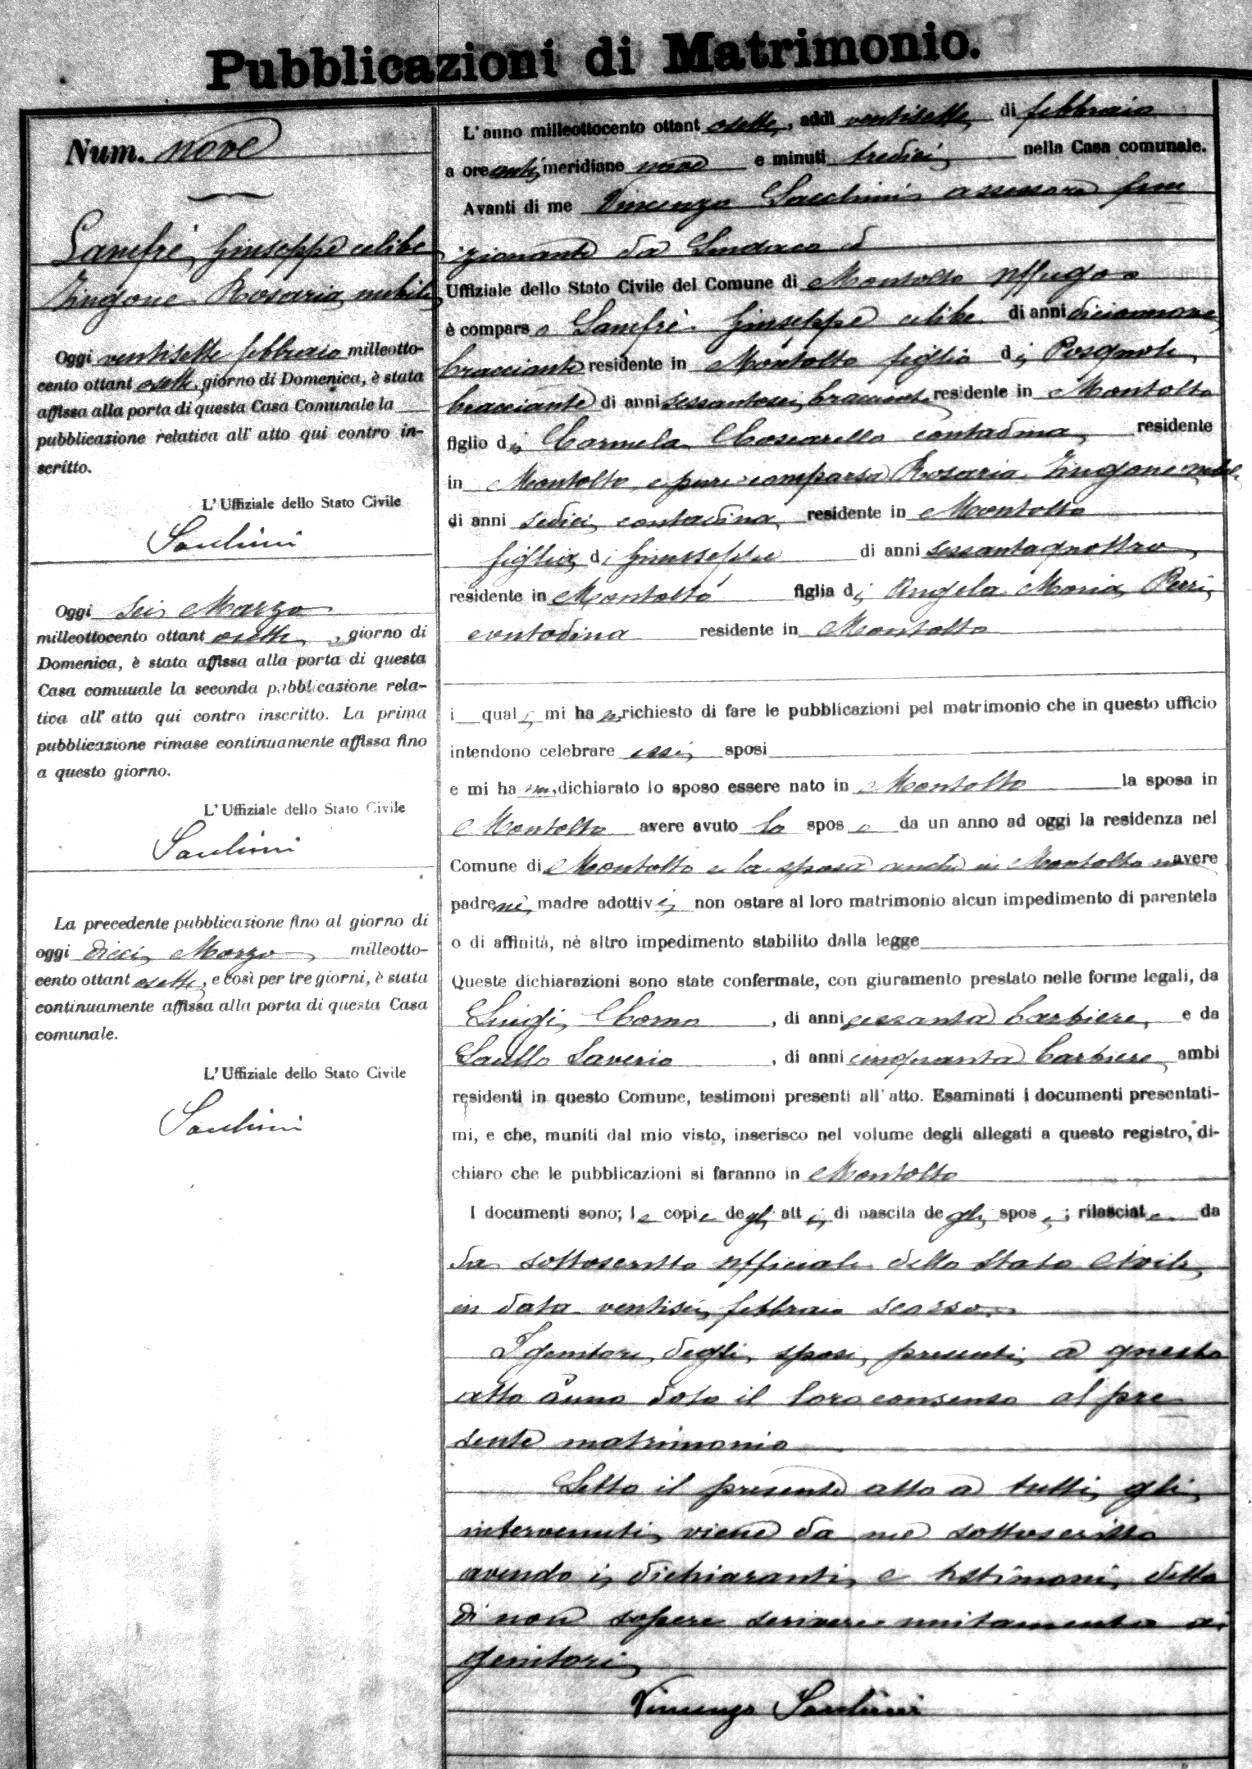 Pubblicazioni di Matrimonio.
Num. nove
Lanefrè Giuseppe celibe
Zingone Rosaria nubile
Oggi ventisette febbraio milleotto-
cento ottantasette, giorno di Domenica, è stata
affissa alla porta di questa Casa Comunale la
pubblicazione relativa all' atto qui contro in-
scritto.
L' Uffiziale dello Stato Civile
Oggi sei Marzo
milleottocento ottantasette, giorno di
Domenica, è stata affissa alla porta di questa
Casa comuuale la seconda pubblicazione rela-
tiva all' atto qui contro inscritto. La prima
pubblicazione rimase continuamente affissa fino
a questo giorno.
L' Uffiziale dello Stato Civile
La precedente pubblicazione fino al giorno di
oggi dieci Marzo milleotto-
cento ottantasette, e così per tre giorni, è stata
continuamente affissa alla porta di questa Casa
comunale.
L' Uffiziale dello Stato Civile
L' anno milleottocento ottantasette, addì ventisette di febbraio
a ore antimeridiane nove e minuti tredici nella Casa comunale.
Avanti di me Vincenzo assessore fun
zionante da Sindaco
Uffiziale dello Stato Civile del Comune di Montalto Uffugo
è comparso Lanefrè Giuseppe celibe di anni diciannove
bracciante residente in Montalto figlio di
bracciante di anni sessantasei bracciante residente in Montalto
figlio di Carmela contadina residente
in Montalto, e pure comparsa Rosaria Zingone nubile
di anni sedici contadina residente in Montalto
figlia di Giuseppe di anni sessantaquattro
residente in Montalto figlia di Angela Maria Perri
contadina residente in Montalto
i quali mi hanno richiesto di fare le pubblicazioni pel matrimonio che in questo ufficio
intendono celebrare essi sposi
e mi hanno dichiarato lo sposo essere nato in Montalto la sposa in
Montalto avere avuto lo sposo da un anno ad oggi la residenza nel
Comune di Montalto e la sposa anche in Montalto non avere
padre nè madre adottivi, non ostare al loro matrimonio alcun impedimento di parentela
o di affinità, nè altro impedimento stabilito dalla legge
Queste dichiarazioni sono state confermate, con giuramento prestato nelle forme legali, da
Luigi Como, di anni sessanta barbiere, e da
Saullo Saverio, di anni cinquanta barbiere, ambi
residenti in questo Comune, testimoni presenti all' atto. Esaminati i documenti presentati-
mi, e che, muniti dal mio visto, inserisco nel volume degli allegati a questo registro, di-
chiaro che le pubblicazioni si faranno in Montalto
I documenti sono; le copie degli atti di nascita degli sposi; rilasciate da
da sottoscritto ufficiale dello Stato Civile
in data ventisei febbraio scorso.
I genitori degli sposi presenti a questo
atto ànno dato il loro consenso al pre
sente matrimonio
Letto il presente atto a tutti gli
intervenuti viene da me sottoscritto
avendo i dichiaranti e testimoni detto
di non sapere scrivere unitamente ai
genitori
Vincenzo